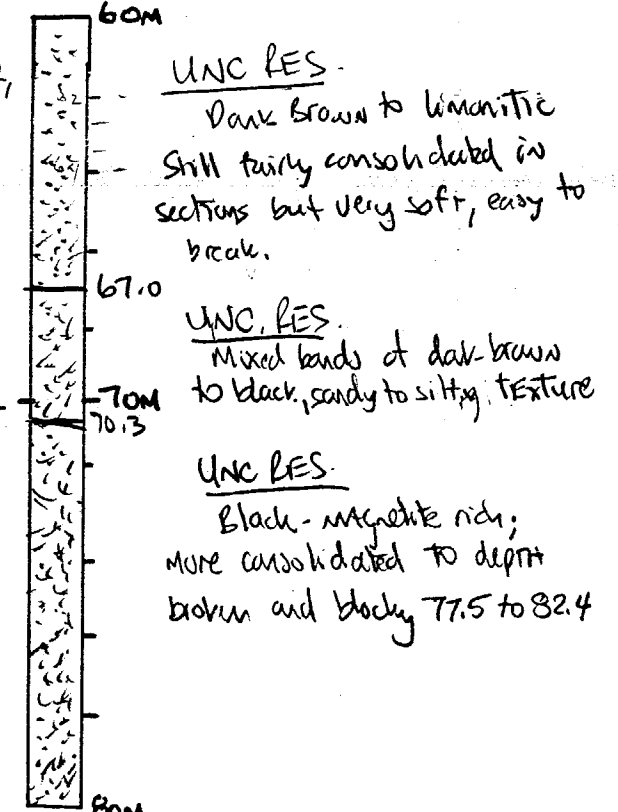 60M
UNC RES.
Dark Brown to limonitic
Still fairly consolidated in
sections but very soft, easy to
break.
67.0
UNC. RES.
Mixed bands of dark-brown
to black, sandy to silty texture
70M
70.3
UNC RES.
Black - magnetite rich;
more consolidated to depth
broken and blocky 77.5 to 82.4
80M